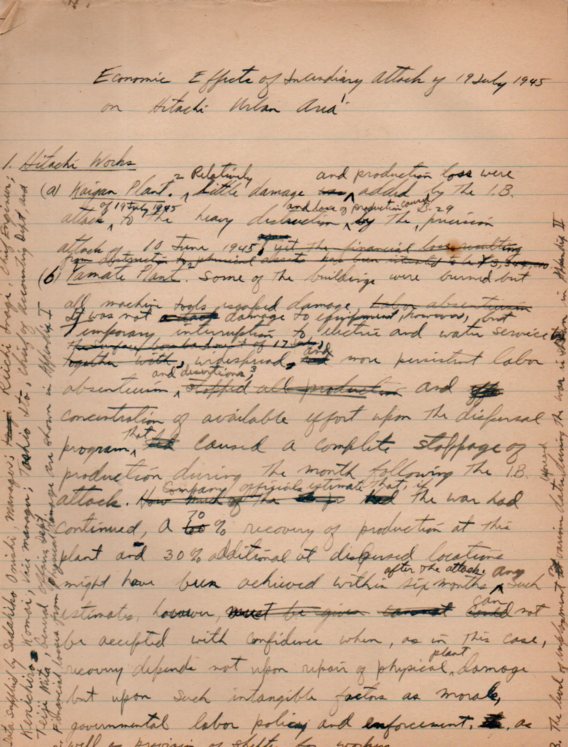 Economic Effects of Incendiary Attack of 19 July 1945
on Hitachi Urban Area
1. Hitachi Works
(a) Kaigan Plant. 2 Relatively little damage and production loss were added by the I.B.
attack of 19 July 1945 to the heavy destruction and loss of production caused by the B-29 precision
attack of 10 June 1945
(b) Yamate Plant. 2 Some of the buildings were burned but
all machine tools escaped damage.
It was not damage to equipment, however, but
temporary interruption to electric and water services
together with widespread, and more persistent labor
absenteeism and desertions, 3 stopped all production and
concentration of available effort upon the dispersal
program that caused a complete stoppage of
production during the month following the I.B.
attack. Company officials estimate that, if the war had
continued, a 70 % recovery of production at this
plant and 30% additional at dispersed locations
might have been achieved within six months after the attack. Any such
estimate, however, must be given cannot can not
be accepted with confidence when, as in this case,
recovery depends not upon repair of physical plant damage
but upon such intangible factors as morale,
governmental labor policy and enforcement, as
well as provision of shelter for workers
Data supplied by Omichi, Manager; Kiichi, Chief Engineer;
Komai, vice manager; Ito, chief of Accounting Dept, and
General Affairs Dept.
Financial losses from damage are shown in Appendix I
3. The level of employment during the war is shown in Appendix II